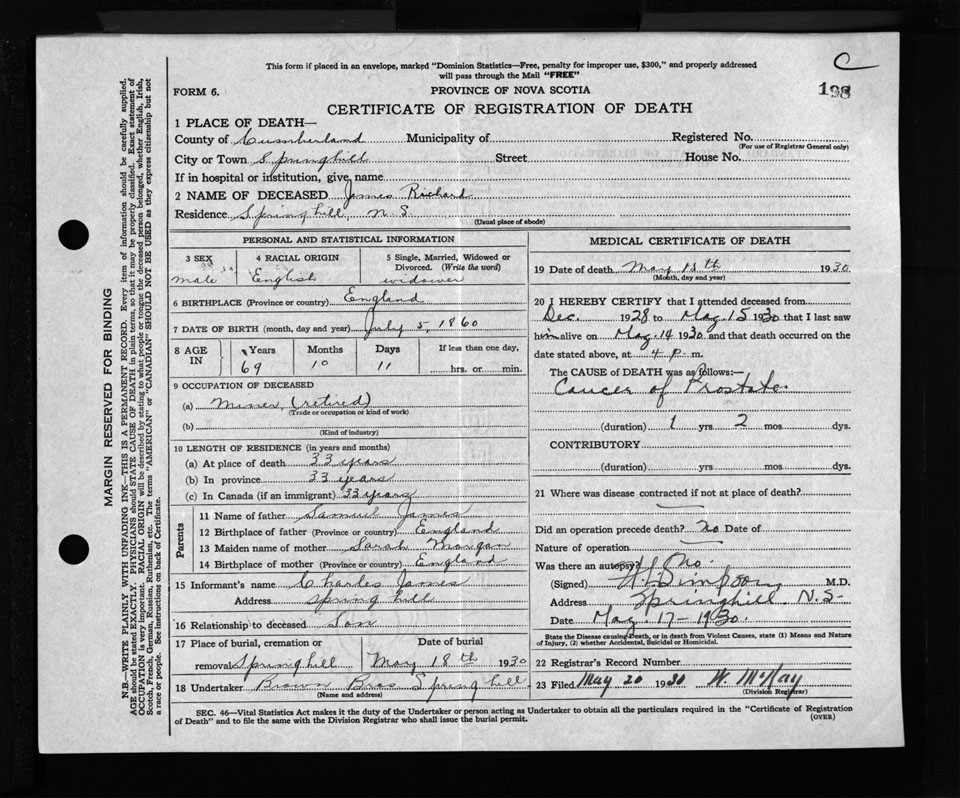 C
198
This form if placed in an envelope, marked "Dominion Statistics—Free, penalty for improper use, $300," and properly addressed
will pass through the Mail "FREE"
FORM 6. PROVINCE OF NOVA SCOTIA
CERTIFICATE OF REGISTRATION OF DEATH
1 PLACE OF DEATH—
County of Cumberland Municipality of Registered No.
(For use of Registrar General only)
City or Town Springhill Street House No.
If in hospital or institution, give name
2 NAME OF DECEASED James Richard
Residence Springhill, N.S.
(Usual place of abode)
PERSONAL AND STATISTICAL INFORMATION
3 SEX 4 RACIAL ORIGIN 5 Single, Married, Widowed or Divorced. (Write the word)
male English widower
6 BIRTHPLACE (Province or country) England
7 DATE OF BIRTH (month, day and year) July 5, 1860
8 AGE IN Years Months Days If less than one day,
69 10 11 hrs. or min.
9 OCCUPATION OF DECEASED
(a) Miner (retired)
(Trade or occupation or kind of work)
(b)
(Kind of industry)
10 LENGTH OF RESIDENCE (in years and months)
(a) At place of death 33 years
(b) In province 33 years
(c) In Canada (if an immigrant) 33 years
Parents
11 Name of father Samuel James
12 Birthplace of father (Province or country) England
13 Maiden name of mother Sarah Morgan
14 Birthplace of mother (Province or country) England
15 Informant's name Charles James
Address Springhill
16 Relationship to deceased Son
17 Place of burial, cremation or Date of burial
removal Springhill May 18th 1930
18 Undertaker Brown Bros Springhill
(Name and address)
MEDICAL CERTIFICATE OF DEATH
19 Date of death May 15th 1930
(Month, day and year)
20 I HEREBY CERTIFY that I attended deceased from
Dec. 1928 to May. 15 1930 that I last saw
him alive on May. 14 1930 and that death occurred on the
date stated above, at 4 p. m.
The CAUSE of DEATH was as follows:—
Cancer of Prostate.
(duration) 1 yrs 2 mos dys.
CONTRIBUTORY
(duration) yrs. mos. dys.
21 Where was disease contracted if not at place of death?
Did an operation precede death? no Date of
Nature of operation
Was there an autopsy? No.
(Signed) Simpson M.D.
Address Springhill N.S-
Date May. 17-1930.
State the Disease causing Death, or in death from Violent Causes, state (1) Means and Nature
of Injury, (2) whether Accidental, Suicidal or Homicidal.
22 Registrar's Record Number
23 Filed May 20 1930 W. McKay
(Division Registrar)
SEC. 46—Vital Statistics Act makes it the duty of the Undertaker or person acting as Undertaker to obtain all the particulars required in the "Certificate of Registration
of Death" and to file the same with the Division Registrar who shall issue the burial permit.
(OVER)
MARGIN RESERVED FOR BINDING
N.B.—WRITE PLAINLY WITH UNFADING INK—THIS IS A PERMANENT RECORD. Every item of information should be carefully supplied.
AGE should be stated EXACTLY. PHYSICIANS should STATE CAUSE OF DEATH in plain terms, so that it may be properly classified. Exact statement of
OCCUPATION is very important. RACIAL ORIGIN will be described by stating to what people or tongue the deceased person belonged, whether English, Irish,
Scotch, French, German, Russian, Ruthenian, etc. The terms "AMERICAN" or "CANADIAN" SHOULD NOT BE USED as they express citizenship but not
a race or people. See instructions on back of Certificate.